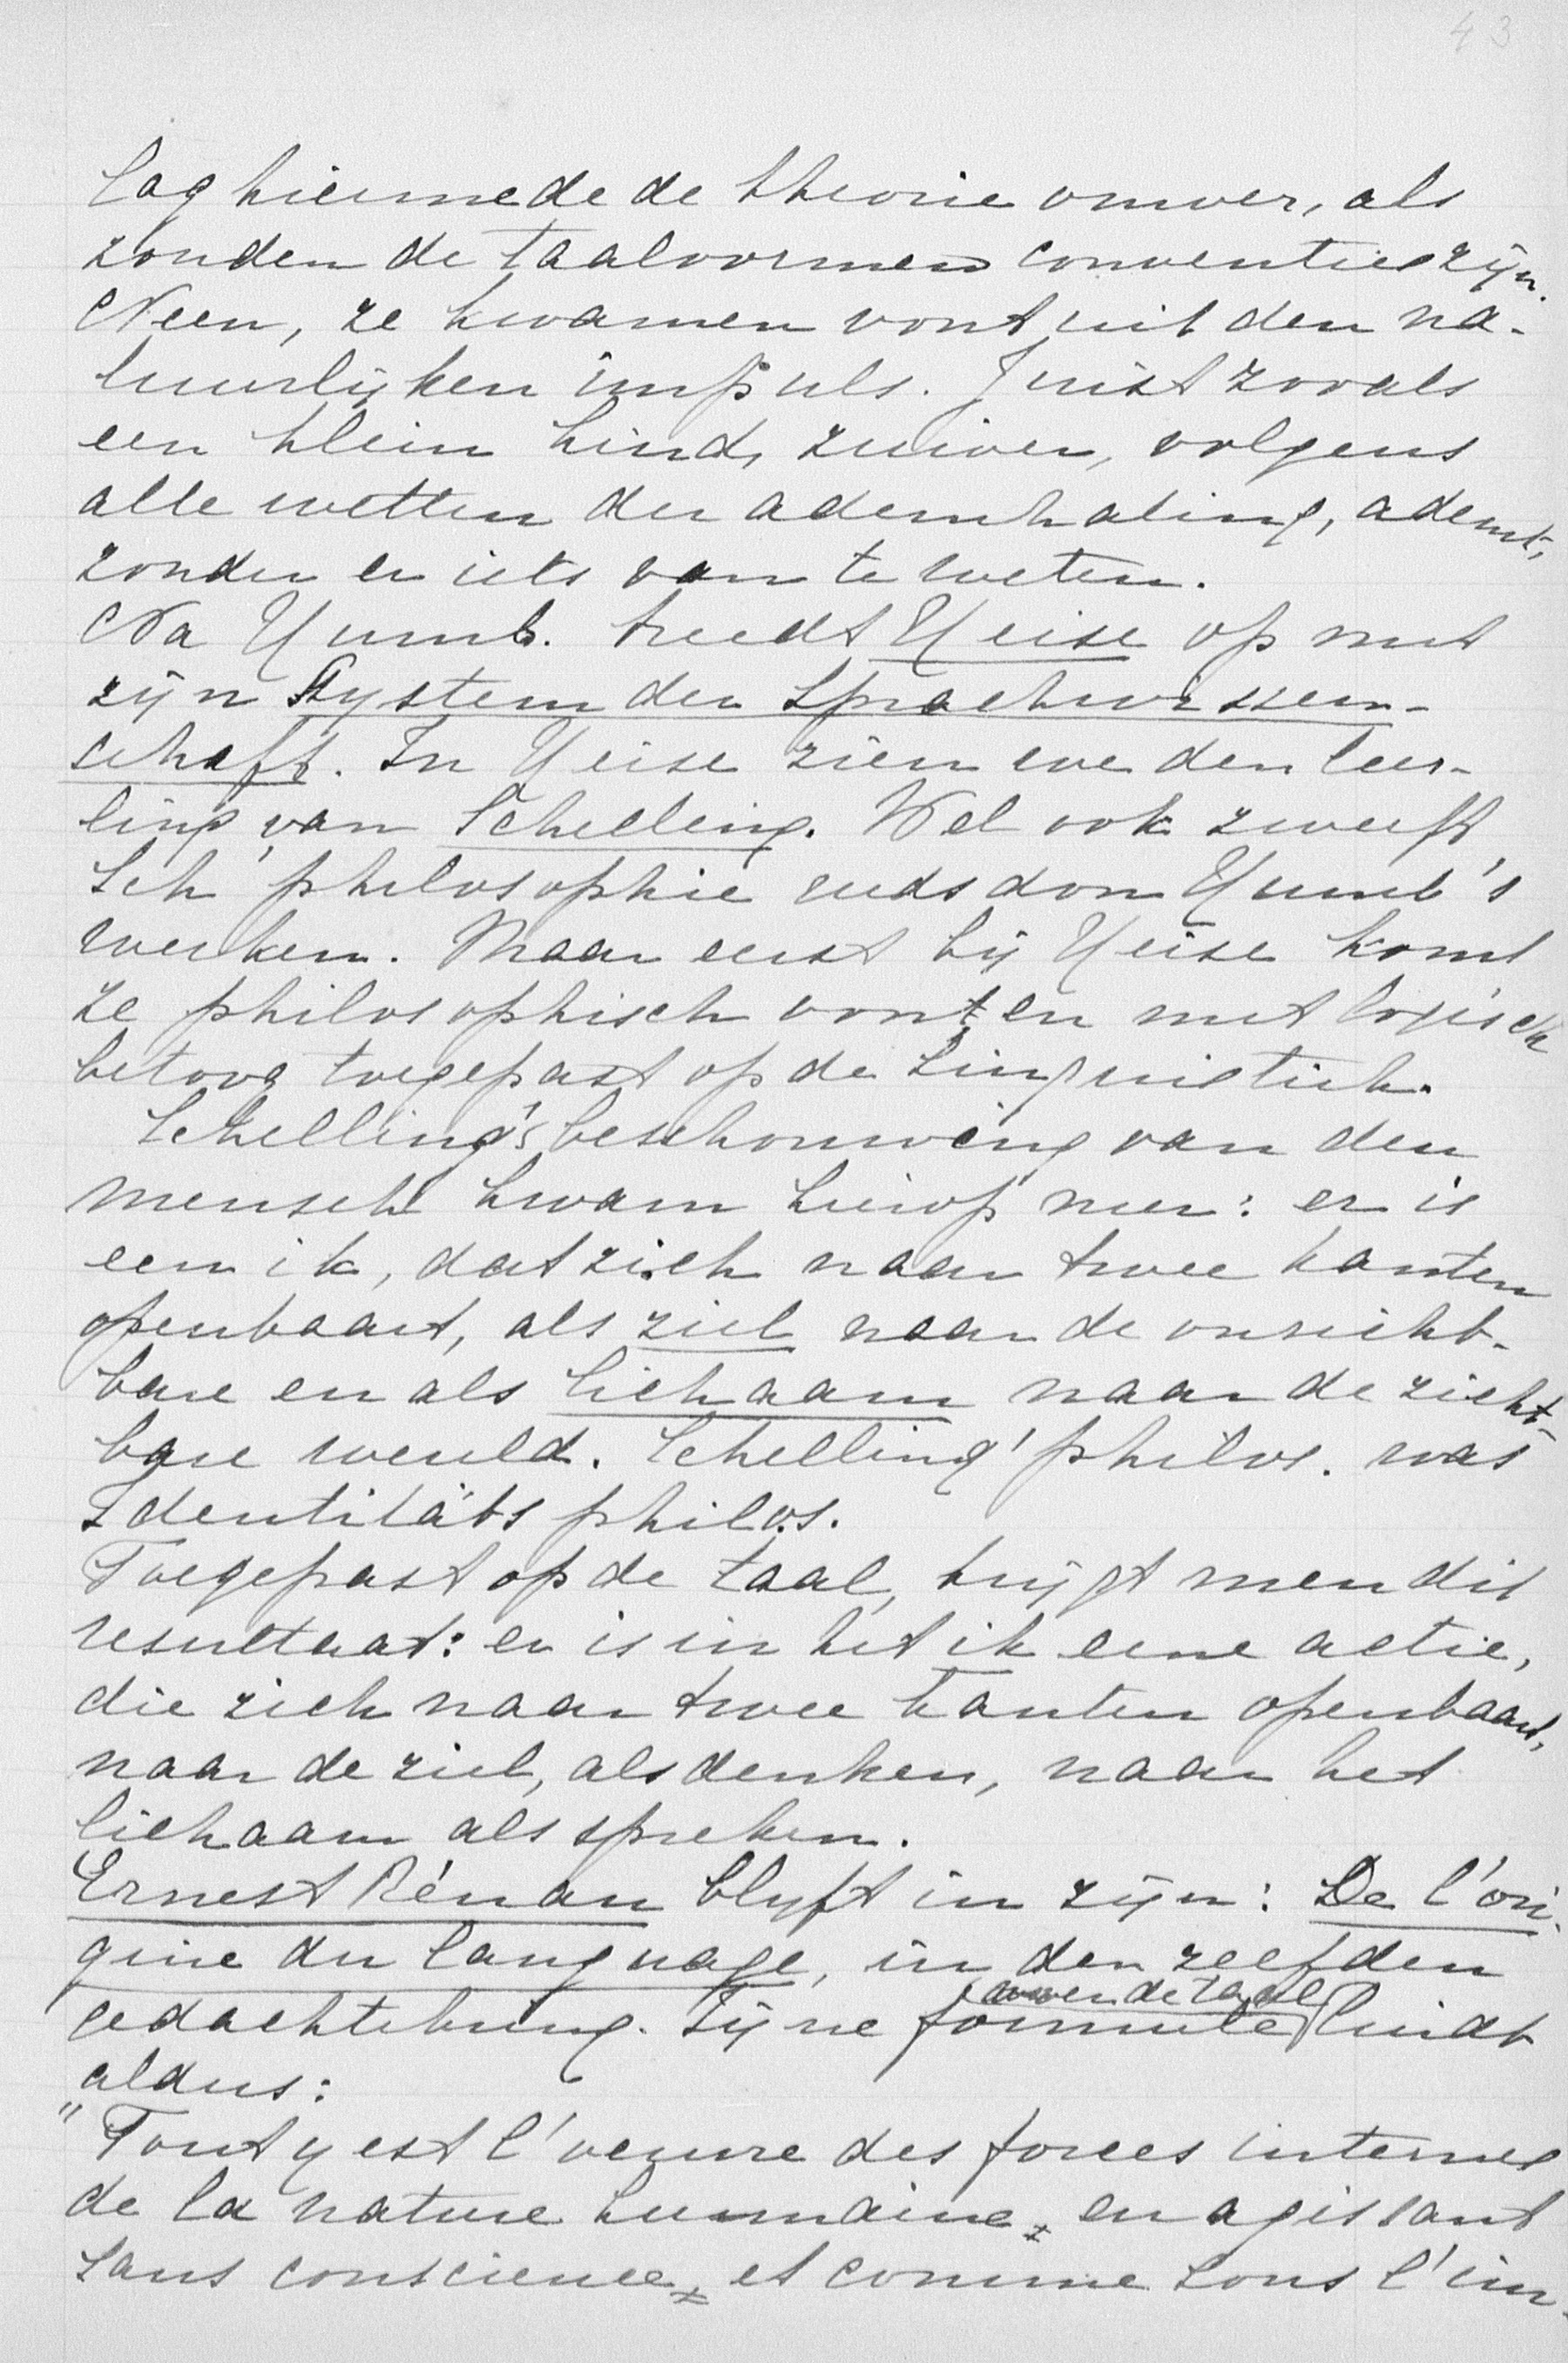 43
lag hiermede de theorie omver, als
zouden de taalvormen conventies zijn.
Neen, ze kwamen voort uit den na-
tuurlijken impuls. Juist zooals
een klein kind, zuiver, volgens
alle wetten der ademhaling, ademt,
zonder er iets van te weten.
Na Humb. treedt Heise op met
zijn System der Sprachwissen-
schaft. In Heise zien we den leer-
ling van Schelling. Wel ook zweeft
Sch philosophie reeds door Humb's
werken. Maar eerst bij Heise komt
ze philosophisch voort en met logisch
betoog toegepast op de Linguistiek.
Schelling's beschouwing van den
mensch kwam hierop neer: er is
een ik, dat zich naar twee kanten
openbaart, als ziel naar de onzicht-
bare en als lichaam naar de zicht-
bare wereld. Schelling' philos. was
Identitäts philos.
Toegepast op de taal, krijgt men dit
resultaat: er is in het ik eene actie,
die zich naar twee kanten openbaart,
naar de ziel, als denken, naar het
lichaam als spreken.
Ernest Rénan blyft in zijn: De l'ori-
gine du language, in den zelfden
gedachtekring. Zijne formule over de taal luidt
aldus:
"Tout y est l'oeuvre des forces internes
de la nature humaine, en agissant
sans conscience, et comme sous l'im-